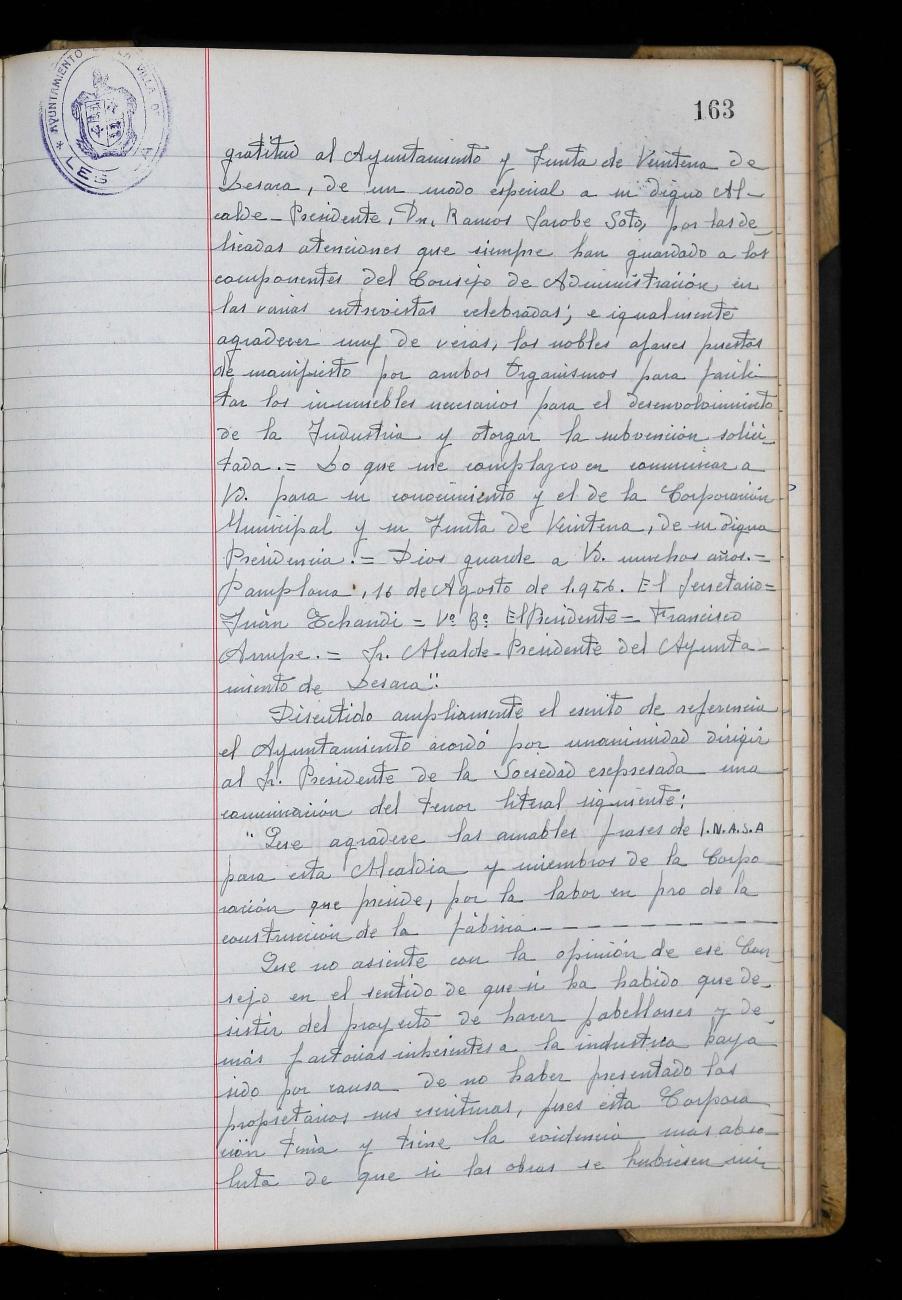 AYUNTAMIENTO DE LA VILLA DE
* LES A
163
gratitud al Ayuntamiento y Junta de Veintena de
Lesaca, de un modo especial a su digno Al-
calde-Presidente, Dn. Ramos Jarobe Soto, por las de-
licadas atenciones que siempre han guardado a los
componentes del Consejo de Administración, en
las varias entrevistas celebradas; e igualmente
agradecer muy de veras, los nobles afanes puestos
de manifiesto por ambos Organismos para facili-
tar los inmuebles necesarios para el desenvolvimiento
de la Industria y otorgar la subvención solici-
tada.= Lo que me complazco en comunicar a
Vd. para su conocimiento y el de la Corporación
Municipal y su Junta de Veintena, de su digna
Presidencia.= Dios guarde a Vd. muchos años.=
Pamplona, 16 de Agosto de 1.956. El Secretario=
Juan Echandi = Vº Bº El Presidente = Francisco
Arrupe.= Sr. Alcalde-Presidente del Ayunta-
miento de Lesaca".
Discutido ampliamente el escrito de referencia
el Ayuntamiento acordó por unanimidad dirigir
al Sr. Presidente de la Sociedad esepresada una
comunicación del tenor literal siguiente:
"Que agradece las amables frases de I.N.A.S.A
para esta Alcaldia y miembros de la Corpo-
ración que preside, por la labor en pro de la
construcción de la fábrica.- - - - - - - - - -
Que no asiente con la opinión de ese Con-
sejo en el sentido de que si ha habido que de-
sistir del proyecto de hacer pabellones y de-
más factorias inherentes a la industrea haya
sido por causa de no haber presentado los
propietarios sus escrituras, pues esta Corpora-
ción tenía y tiene la evidencia mas abso-
luta de que si las obras se hubiesen ini-